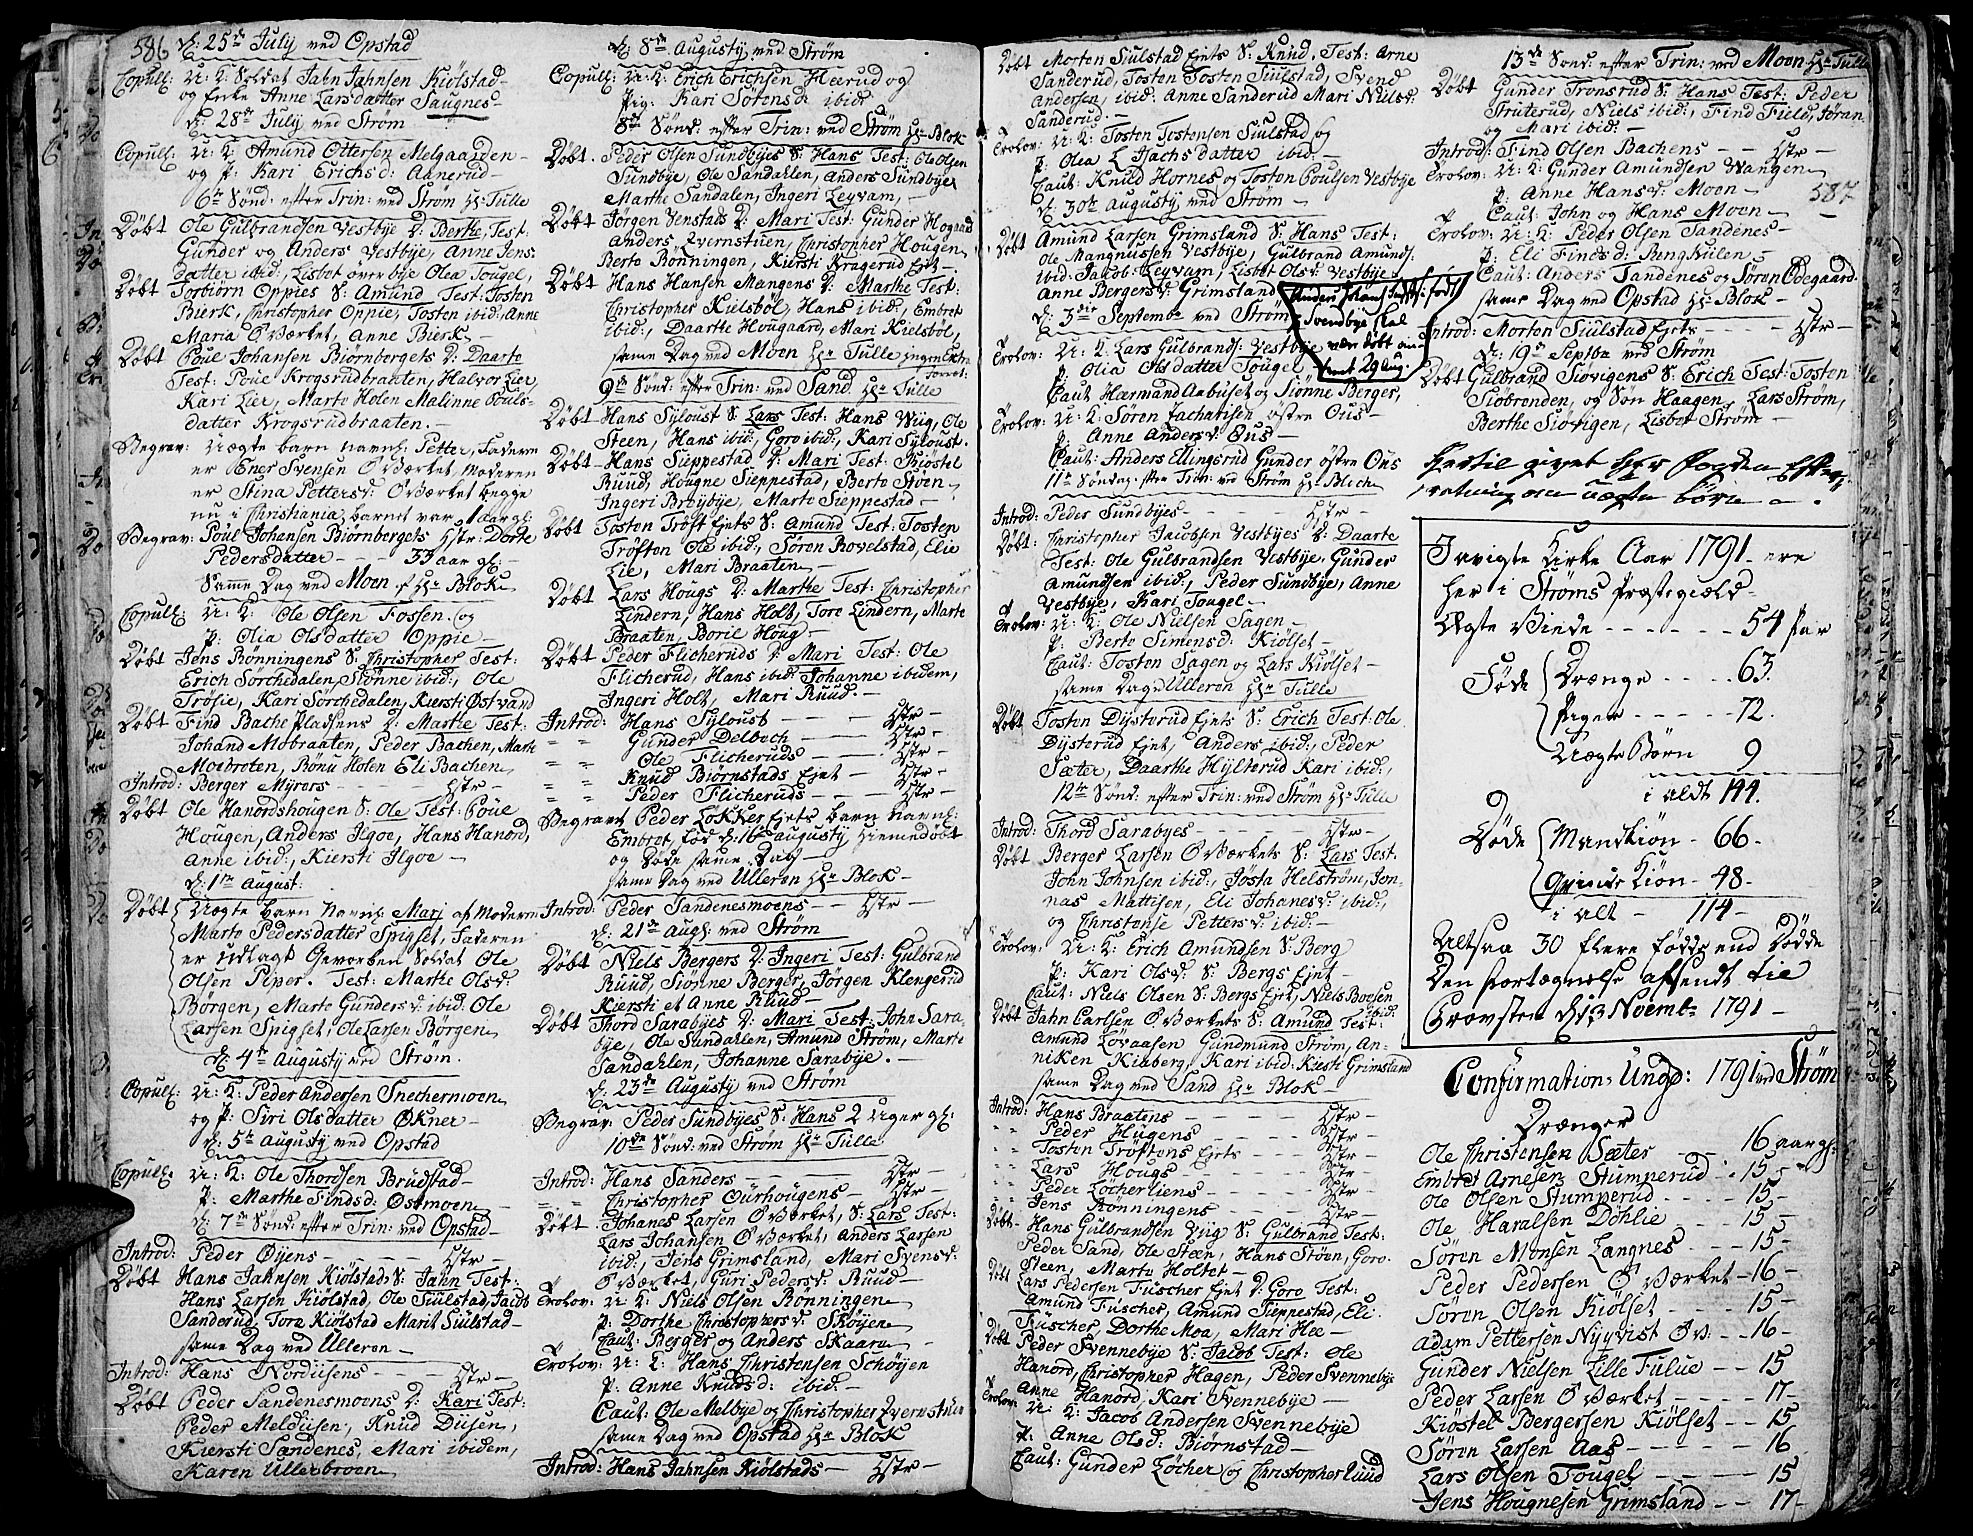 586 d: 25de July ved Opstad
Copull: U: K: Soldat Jahn Jahnsen Kiölstad
og Enke Anne Larsdatter Saugnes
d: 28de July ved Ström
Copull: U: K: Amund Ottersen Melgaarden
og P: Kari Erichsd: Aanerud
6te Sönd: efter Trin: ved Ström Hr: Tulle
Döbt Ole Gulbrandsen Vestbye D: Berthe, Test:
Gunder og Anders Vestbye, Anne Jens
datter ibid:, Lisbet överbye Olea Tougel,
Döbt Torbiörn Oppies S: Amund Test: Tosten
Bierk, Christopher Oppie, Tosten ibid: Anne
Maria O Værket, Anne Bierk
Döbt Poul Johansen Biörnbergets D: Daarte
Test: Poul Krogsrudbraaten, Halvor Lier,
Kari Lier, Marte Holen Malinne Pouls-
datter Krogsrudbraaten.
Begrav: Uægte barn navnl: Petter, Faderen
er Ener Svensen O Værket Moderen
er Stina Pettersd: O Værket begge
nu i Christiania, barnet var 1 aar gl:
Begrav: Poul Johansen Biörnbergets Hstr: Dorte
Pedersdatter - - 33 aar gl:
Same Dag ved Moen Hr: Blok
Copull: U: K: Ole Olsen Fossen og
P: Olia Olsdatter Oppie
Döbt Jens Rönningens S: Christopher Test:
Erich Sörchedalen, Siönne ibid:, Ole
Trösie, Kari Sörchedalen, Kiersti Östvand
Döbt Find Bache Pladsens D: Marthe Test:
Johand Mobraaten, Peder Bachen, Marte
Mobroten, Rönu Holen Eli Bachen
Introd: Berger Myrers - - Hstr
Döbt Ole Hanordshougen S: Ole Test: Poul
Hougen, Anders Ilgoe, Hans Hanord,
Anne ibid:, Kiersti Ilgoe
d: 1te August:
Döbt Uægte barn Navnl: Mari af Moderen
Marte Pedersdatter Spigset, Faderen
er Udlagt Gevorben Soldat Ole
Olsen Piper. Test: Marthe Olsd:
Börgen, Marte Gundersd: ibid: Ole
Larsen Spigset, Ole Larsen Börgen
d: 4te Augusty ved Ström.
Copull: U: K: Peder Andersen Snethermoen
og P: Siri Olsdatter Økner
d: 5te Augusty ved Opstad
Copull: U: K: Ole Thordsen Brudstad
P: Marthe Findsd: Østmoen
d: 7de Sönd: efter Trin: ved Opstad
Introd: Peder Öyens - - Hstr
Döbt Hans Jahnsen Kiölstads S: Jahn Test:
Hans Larsen Kiölstad, Ole Siulstad, Jacob
Sanderud, Tora Kiölstad Marit Siulstad
same Dag ved Ulleren
Introd: Hans Nordiisens - - Hstr
Döbt Peder Sandenesmoens D: Kari Test:
Peder Meldiisen, Knud Diisen,
Kiersti Sandenes, Mari ibidem,
Karen Ullerbroen
d: 8de Augusty ved Ström
Copull: U: K: Erich Erichsen Heerud og
Pig: Kari Sörensd: ibid:
8de Sönd: efter Trin: ved Ström Hr: Blok
Döbt. Peder Olsen Sundbyes S: Hans Test: Ole Olsen
Sundbye, Ole Sandahlen, Anders Sundbye,
Marthe Sandalen, Ingeri Leyram,
Döbt Jörgen Venstads D: Mari Test: Gunder Hogaad
Anders Qvernstuen, Christopher Hougen
Berte Rönningen, Kiersti Kragerud Ejet
Döbt Hans Hansen Mangens D: Marthe Test:
Christopher Kielsböl, Hans ibid:, Embret
ibid:, Daarthe Hougaard, Mari Kielsböl,
same Dag ved Moen Hr: Tulle ingen Extra
9de Sönd: efter Trin: ved Sand Hr: Tulle
Döbt Hans Syloust S: Lars Test: Hans Wiig, Ole
Steen, Hans ibid:, Goro ibid:, Kari Syloust.
Döbt Hans Sieppestad D: Mari Test: Kiöstel
Ruud, Hougne Sieppestad, Berte Stöen
Ingeri Bröybye, Marte Sieppestad
Döbt Tosten Tröft Ejets S: Amund Test: Tosten
Tröften Ole ibid:, Sören Rovelstad, Elie
Lie, Mari Braaten
Döbt Lars Hougs D: Marthe Test: Christopher
Lindern, Hans Holt, Tore Lindern, Marte
Braaten, Boril Houg
Döbt Peder Flicheruds D: Mari Test: Ole
Flicherud, Hans ibid: Johanne ibidem,
Ingeri Holt, Mari Ruud.
Introd: Hans Syloust - - Hstr
" " Gunder Delboch - - Hstr
" " Ole Flicheruds - - Hstr
" " Knud Biörnstads Ejet - Hstr
" " Peder Flicheruds - - Hstr
Begravet Peder Løkker Ejets barn Navnl:
Embret, föd d: 16de Augusty hiemedöbt
og Döde same Dag
same Dag ved Ulleren Hr: Blok
Introd: Peder Sandenesmoens - - Hstr
d: 21de Augs: ved Ström
Döbt Niels Bergers D: Ingeri Test: Gulbrand
Ruud, Siönne Berger, Jörgen Klengerud
Kiersti et Anne Ruud
Döbt Thord Sarabyes D: Mari Test: John Sara-
bye, Ole Sundahlen, Amund Ström, Marte
Sandahlen, Johanne Sarabye.
d: 23de Augusty ved Ström
Begrav: Peder Sundbyes S: Hans 2 Uger gl:
10de Sönd: ved Ström Hr: Tulle
Introd: Hans Sanders - - Hstr
" " Christopher Ourhougens - Hstr
Döbt Johanes Larsen O Værket, S: Lars Test:
Lars Johansen O Værket, Anders Larsen
ibid:, Jens Grimsland, Mari Svensd:
O Værket, Guri Pedersd: Ruud
Trolov: U: K: Niels Olsen Rönningen
P: Dorthe Christophersd: Sköyen
Caut: Berger og Anders Skaaren
Trolov: U: K: Hans Christensen Schöyen
P: Anne Knudsd: ibid:
Caut: Ole Melbye og Christopher Qvernstuen
same Dag ved Opstad Hr: Blok
Introd: Hans Jahnsen Kiölstads - Hstr
Döbt Morten Siulstad Ejets S: Knud, Test: Arne
Sanderud, Tosten Tosten Siulstad, Svend
Andersen, ibid: Anne Sanderud Mari Nielsd:
Sanderud.
Trolov: U: K: Tosten Tostensen Siulstad og
P: Olea Isachsdatter ibid:
Caut: Knud Hornes og Tosten Poulsen Vestbye
d: 30te Augusty ved Ström
Döbt Amund Larsen Grimsland S: Hans Test:
Ole Mangnussen Vestbye, Gulbrand Amunds:
ibid: Jacob Leyram, Lisbet Olsd: Vestbye
Anne Bergersd: Grimsland
d: 3die Septembr ved Ström
Anders Johans: Inds: födt
Svendbye skal
være döbt an-
net 29 Aug:
Trolov: U: K: Lars Gulbrands: Vestbye
P: Olia Olsdatter Tougel
Caut Hermand Aabuset og Siönne Berger,
Trolov: U: K: Sören Zachariisen östre Ous
P: Anne Andersd: Ous
Caut: Anders Ellingsrud Gunder östre Ous
11te Söndag efter Trin: ved Ström Hr: Blich
Introd: Peder Sundbyes - - Hstr
Döbt: Christopher Jacobsen Vestbyes D: Daarte
Test: Ole Gulbrandsen Vestbye, Gunder
Amundsen ibid:, Peder Sundbye, Anne
Vestbye, Kari Tougel
Trolov: U: K: Ole Nielsen Sagen
P: Berte Simensd: Kiölset
Caut: Tosten Sagen og Lars Kiölset
same Dag Ulleren Hr: Tulle
Döbt Tosten Dysterud Ejets S: Erich Test: Ole
Dysterud Ejet, Anders ibid:, Peder
Sæter, Daarthe Hylterud Kari ibid:,
12te Sönd: efter Trin: ved Ström Hr: Tulle
Introd: Thord Sarabyes - - Hstr
Döbt Berger Larsen O Værkets S: Lars Test:
John Johnsen ibid:, Jösta Helström, Jon-
nas Mattisen, Eli Johanesd: ibid:,
og Christense Pettersd: ibid:
Trolov: U: K: Erich Amundsen S: Berg
P: Kari Olsd: S: Bergs Ejet
Caut: Niels Olsen S: Bergs Ejet, Niels Boesen ibid:
Döbt Jahn Carlsen O Værkets S: Amund Test:
Amund Lovaasen Gundmund Ström, An-
niken Kiaberg, Kari ibid: Kiersti Grimsland
same Dag ved Sand Hr: Blok
Introd: Hans Braatens - - Hstr
" " Peder Hugens - - Hstr
" " Tosten Tröftens Ejets - Hstr
" " Lars Hougs - - Hstr
" " Peder Löcherliens - - Hstr
" " Jens Rönningens - - Hstr
Döbt Hans Gulbrandsen Viig S: Gulbrand Test:
Peder Sand, Ole Steen, Hans Stöen, Goro
Steen, Marte Holtet
Döbt Lars Pedersen Fuscher Ejet D: Goro Test:
Amund Fuscher, Amund Sieppestad, Eli
Fuscher, Dorthe Moa, Mari Hee
Döbt Peder Svennebye S: Jacob Test: Ole
Hanord, Christopher Hagen, Peder Svennebye
Anne Hanord, Kari Svennebye
Trolov: U: K: Jacob Andersen Svennebye
P: Anne Olsd: Biörnstad
Caut: Gunder Löcher og Christopher Ruud
13de Sönd: efter Trin: ved Moen Hr: Tulle
Döbt Gunder Tronsrud S: Hans Test: Peder
Struterud, Niels ibid:, Find Field, Jöran
og Mari ibid:
Introd: Find Olsen Bachens - - Hstr
Trolov: U: K: Gunder Amundsen Wangen
P: Anne Hansd: Moen
587
Caut: John og Hans Moen
Trolov: U: K: Peder Olsen Sandenes
P: Eli Findsd: Rungkulen
Caut: Anders Sandenes og Sören Odegaard
same Dag ved Opstad Hr: Blok
Introd: Morten Siulstad Ejets - - Hstr
d: 19de Septbr ved Ström
Döbt Gulbrand Siövigens S: Erich Test: Tosten
Siöbrenden, og Søn Haagen, Lars Ström,
Berthe Siövigen, Lisbet Ström
Hertil givet Herr Fogden Efter-
retning om uægte børn
Irvigte Kirke Aar 1791 ere
her i Ströms Præstegield
Ægte Viede - - - 54 Par
Föde Drenge - - 63.
Piger - - 72.
Uægte Børn 9
i aldt 144.
Döde Mandkiön - 66.
Qvinde Kiön - 48
i alt - 114
Altsaa 30 flere fødde end Dödde
Den fortægnelse afsendt til
Provsten d: 13 Novembr 1791
Confirmation: Ungd: 1791 ved Ström
Drænger
Ole Christensen Sæter - 16 aar gl:
Embret Arnesen Stumperud - 15
Ole Olsen Stumperud - - 15
Ole Haralsen Döhlie - - 15
Sören Monsen Langnes - - 15
Peder Pedersen O Værket - 16
Sören Olsen Kiölset - - 15
Adam Pettersen Nyqvist O V: - - 16
Gunder Nielsen Lille Fulue - - 15
Peder Larsen O Værket - - 17
Kiöstel Bergersen Kiölset - - 15
Sören Larsen Aas - - - 16
Lars Olsen Tougel - - - 15
Jens Hougnesen Grimsland - - 17